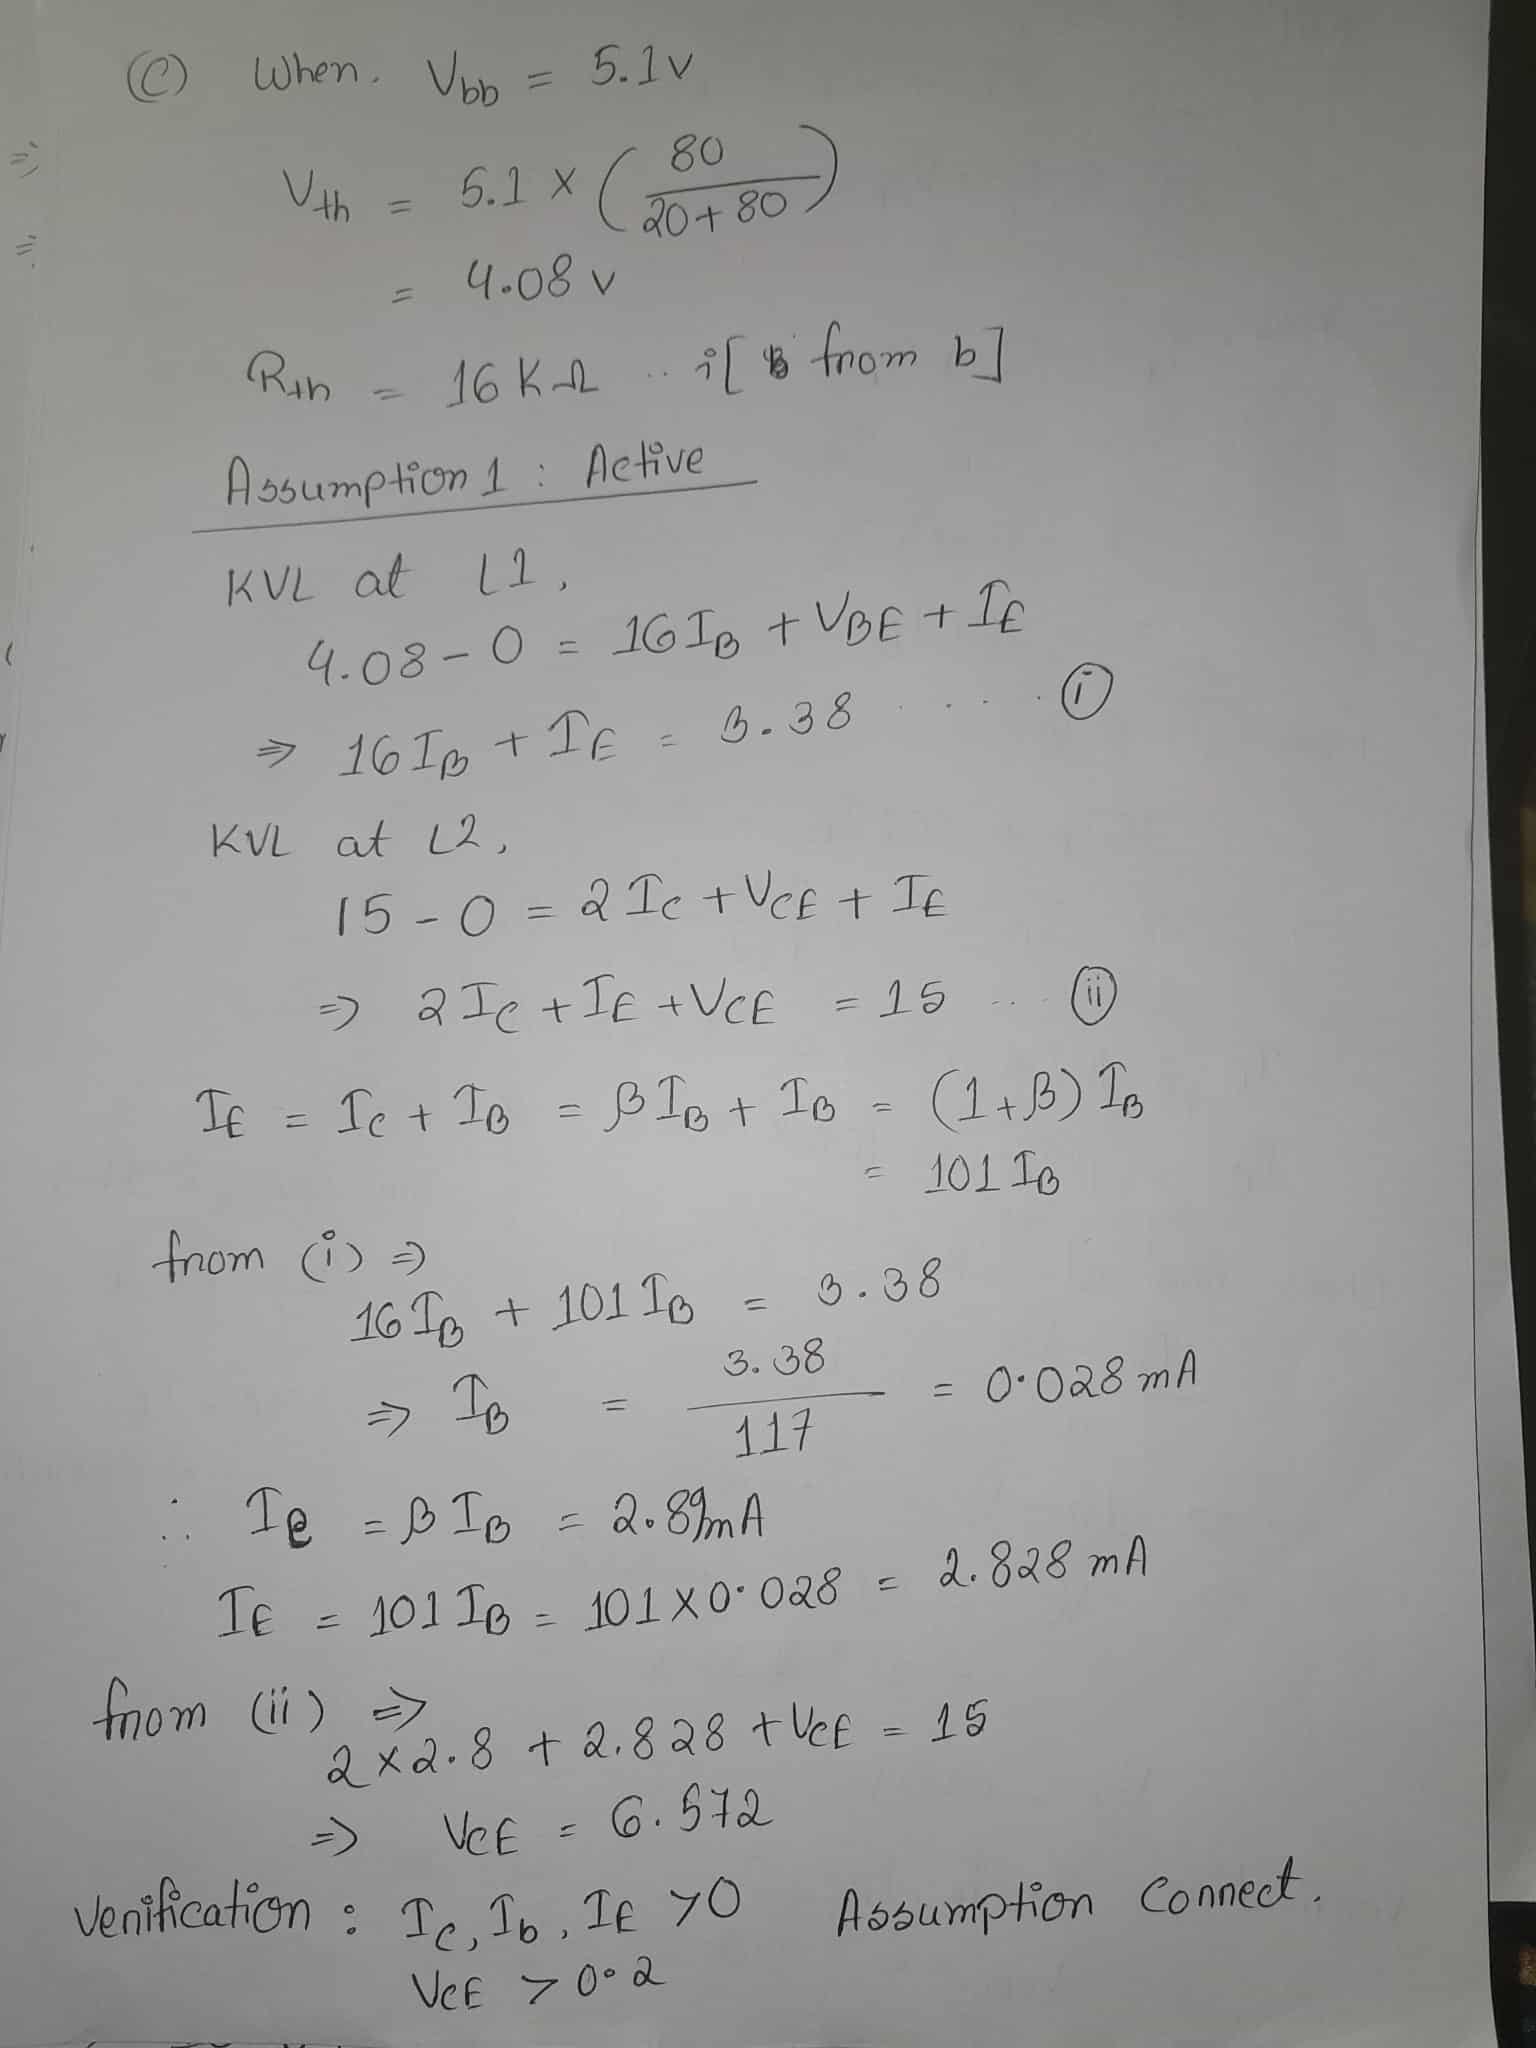 (C) When. Vbb = 5.1v
Vth = 5.1 x ( 80 / 20+80 )
= 4.08 v
Rth = 16 KΩ .. i[ from b]
Assumption 1 : Active
KVL at L1,
4.08 - 0 = 16 IB + VBE + IE
⇒ 16 IB + IE = 3.38 .... (i)
KVL at L2,
15 - 0 = 2 IC + VCE + IE
⇒ 2 IC + IE + VCE = 15 ... (ii)
IE = IC + IB = βIB + IB = (1+β) IB
= 101 IB
from (i) ⇒
16 IB + 101 IB = 3.38
⇒ IB = 3.38 / 117 = 0.028 mA
∴ Ie = β IB = 2.89mA
IE = 101 IB = 101 X 0.028 = 2.828 mA
from (ii) ⇒
2 x 2.8 + 2.828 + VCE = 15
⇒ VCE = 6.572
Verification : Ic, Ib, IE >0 Assumption Correct.
VCE > 0.2